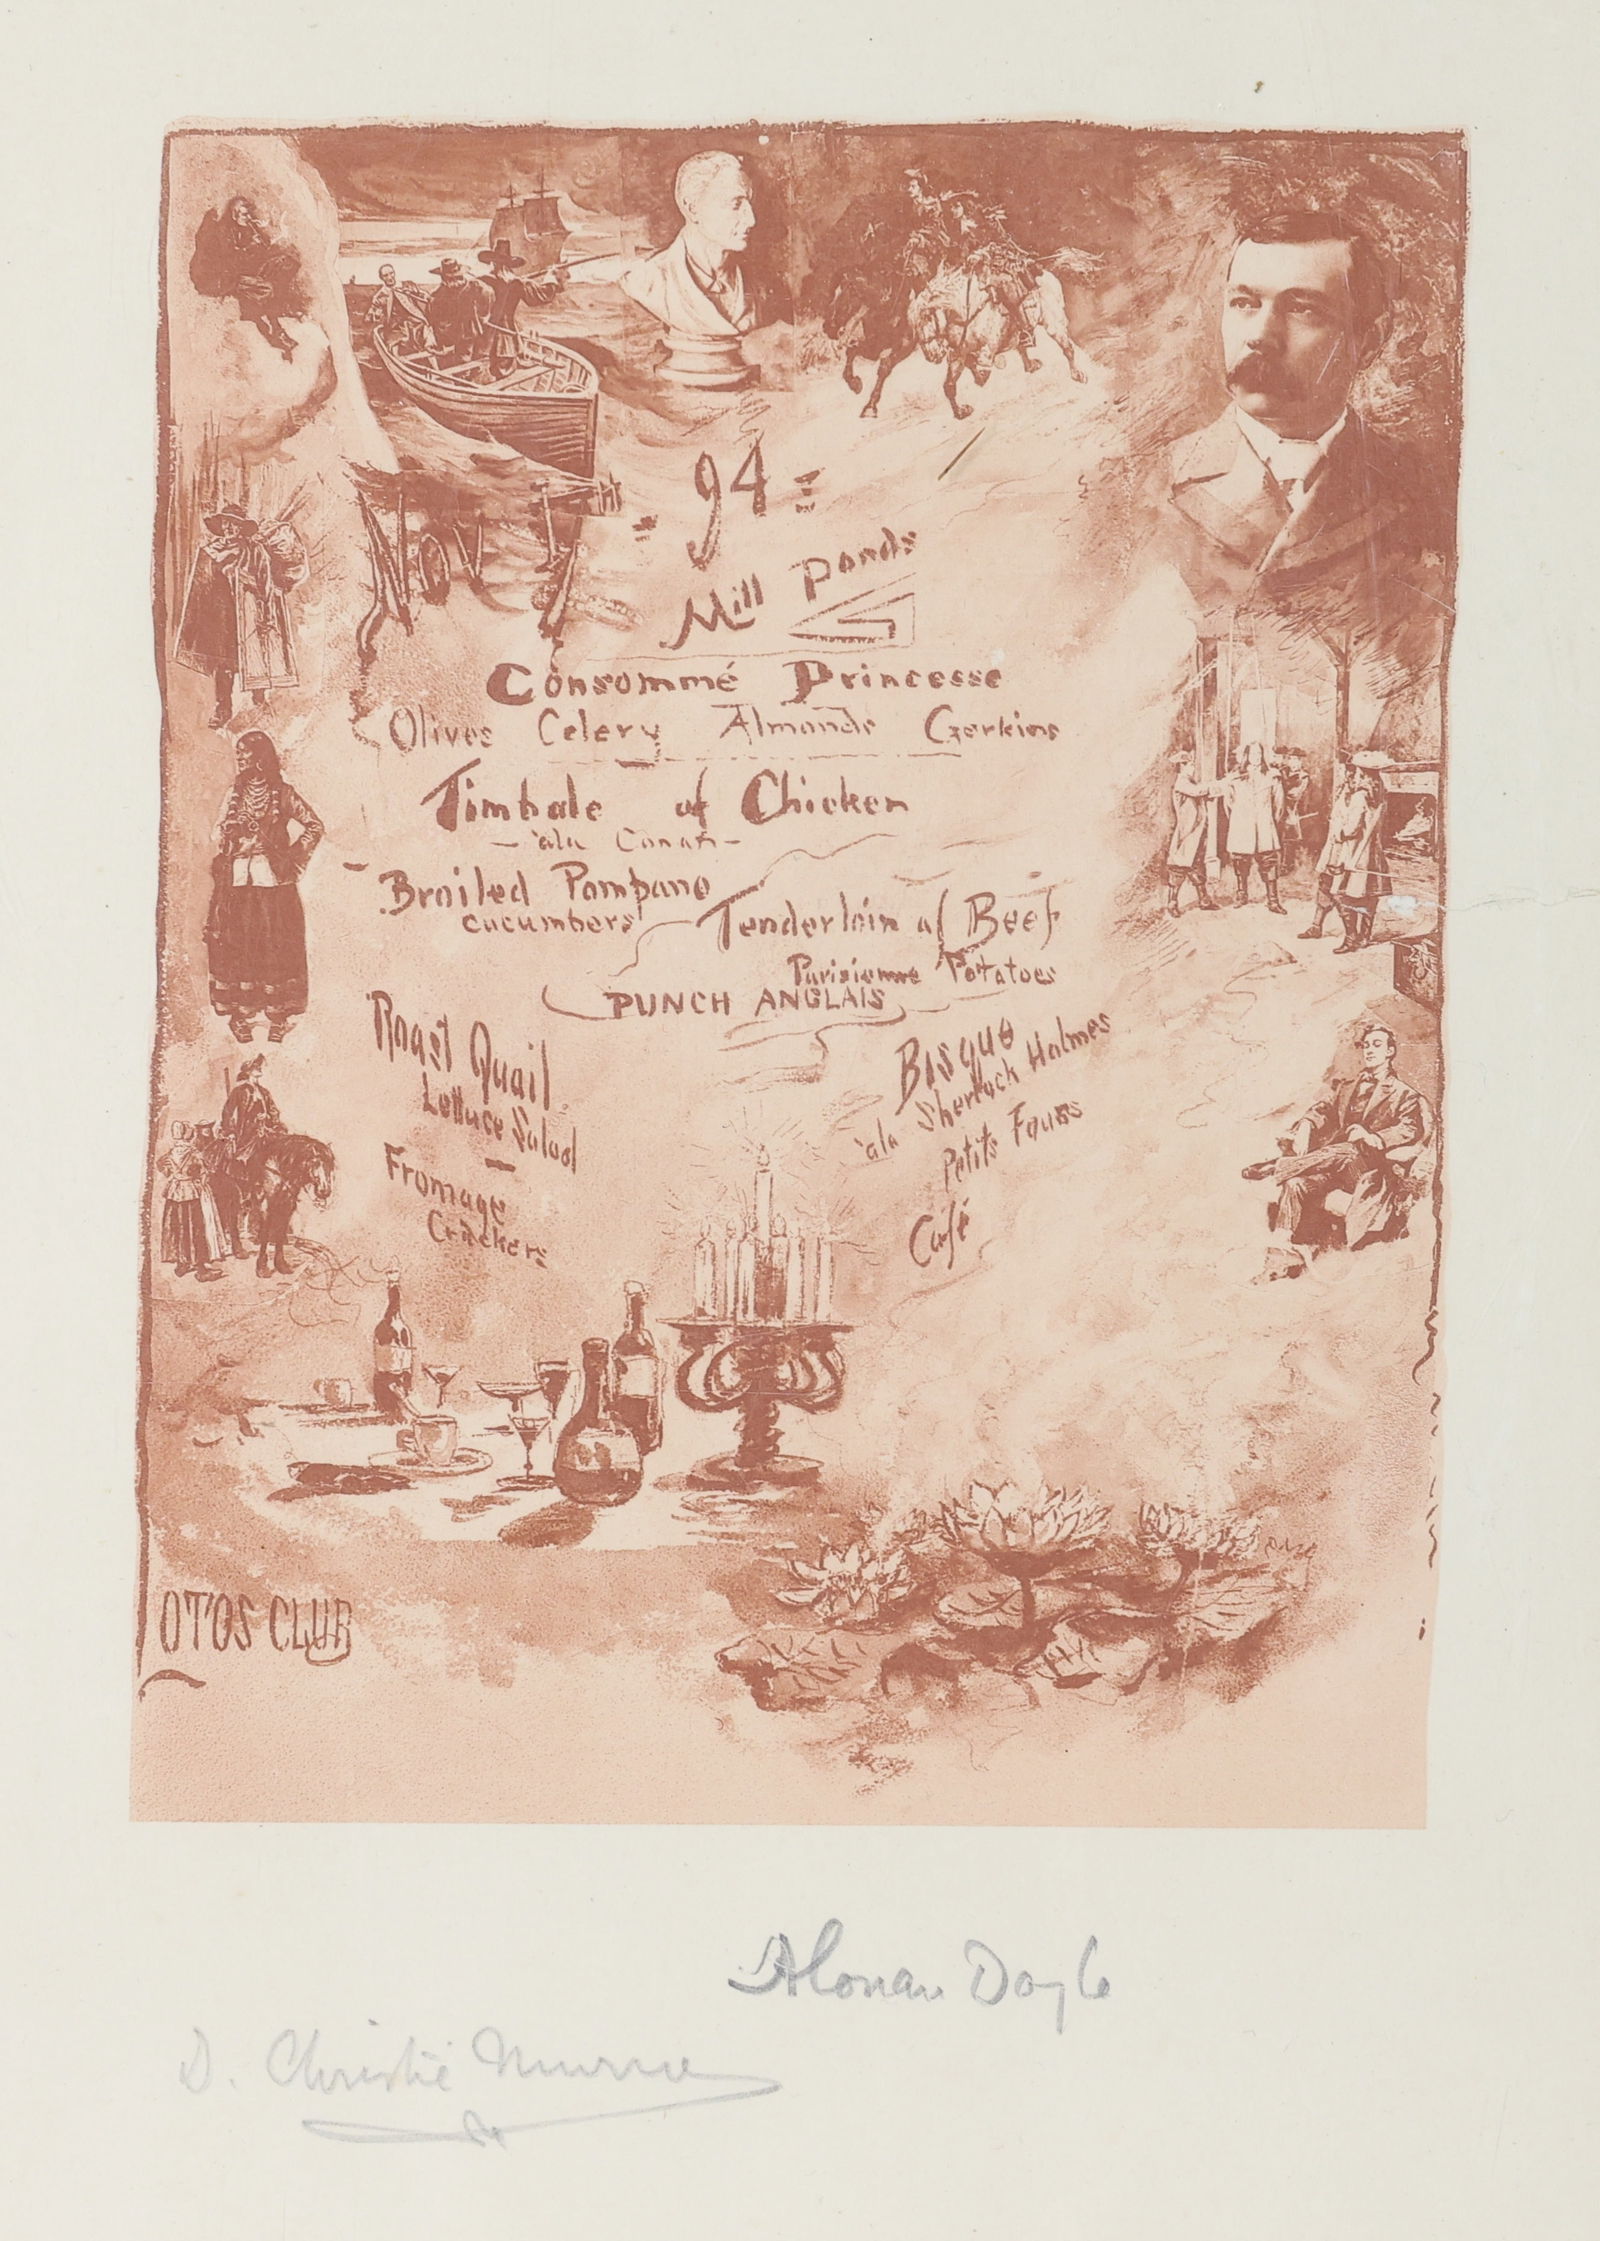 = 94 =
Mill Ponds
Consommé Princesse
Olives Celery Almonds Gerkins
Timbale of Chicken
- àla Conan -
Broiled Pompano
cucumbers
Tenderloin of Beef
Parisienne Potatoes
PUNCH ANGLAIS
Roast Quail
Lettuce Salad
Fromage
Crackers
Bisque
àla Sherlock Holmes
Petits Fours
Café
OTOS CLUB
A Conan Doyle
D. Christie Murray